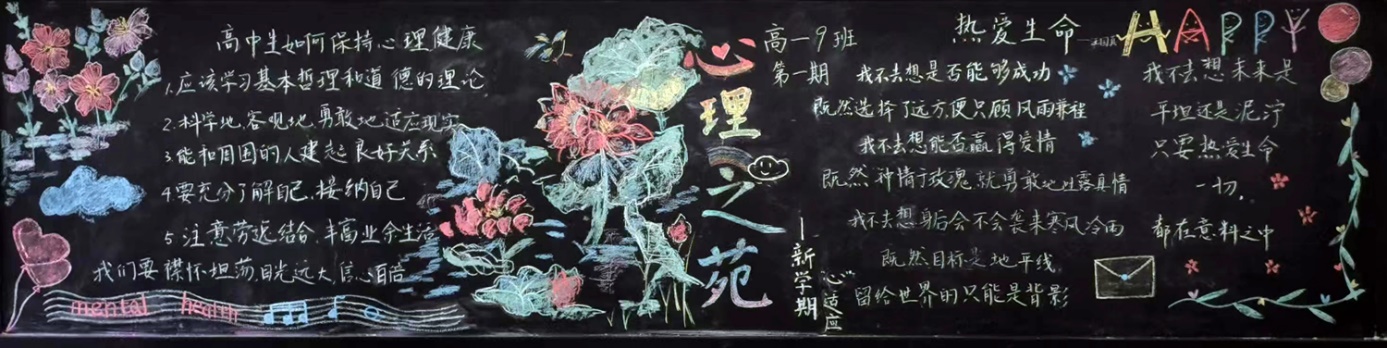 高中生如何保持心理健康
1.应该学习基本哲理和道德的理论
2.科学地、客观地、勇敢地适应现实
3.能和周围的人建起良好关系
4.要充分了解自己、接纳自己
5.注意劳逸结合,丰富业余生活
我们要襟怀坦荡,目光远大,信心百倍
mental health
心理之苑
—新学期“心”适应
高一9班
第一期
热爱生命
HAPPY
我不去想是否能够成功
既然选择了远方,便只顾风雨兼程
我不去想能否赢得爱情
既然钟情于玫瑰,就勇敢地吐露真情
我不去想身后会不会袭来寒风冷雨
既然目标是地平线
留给世界的只能是背影
我不去想未来是
平坦还是泥泞
只要热爱生命
一切,
都在意料之中